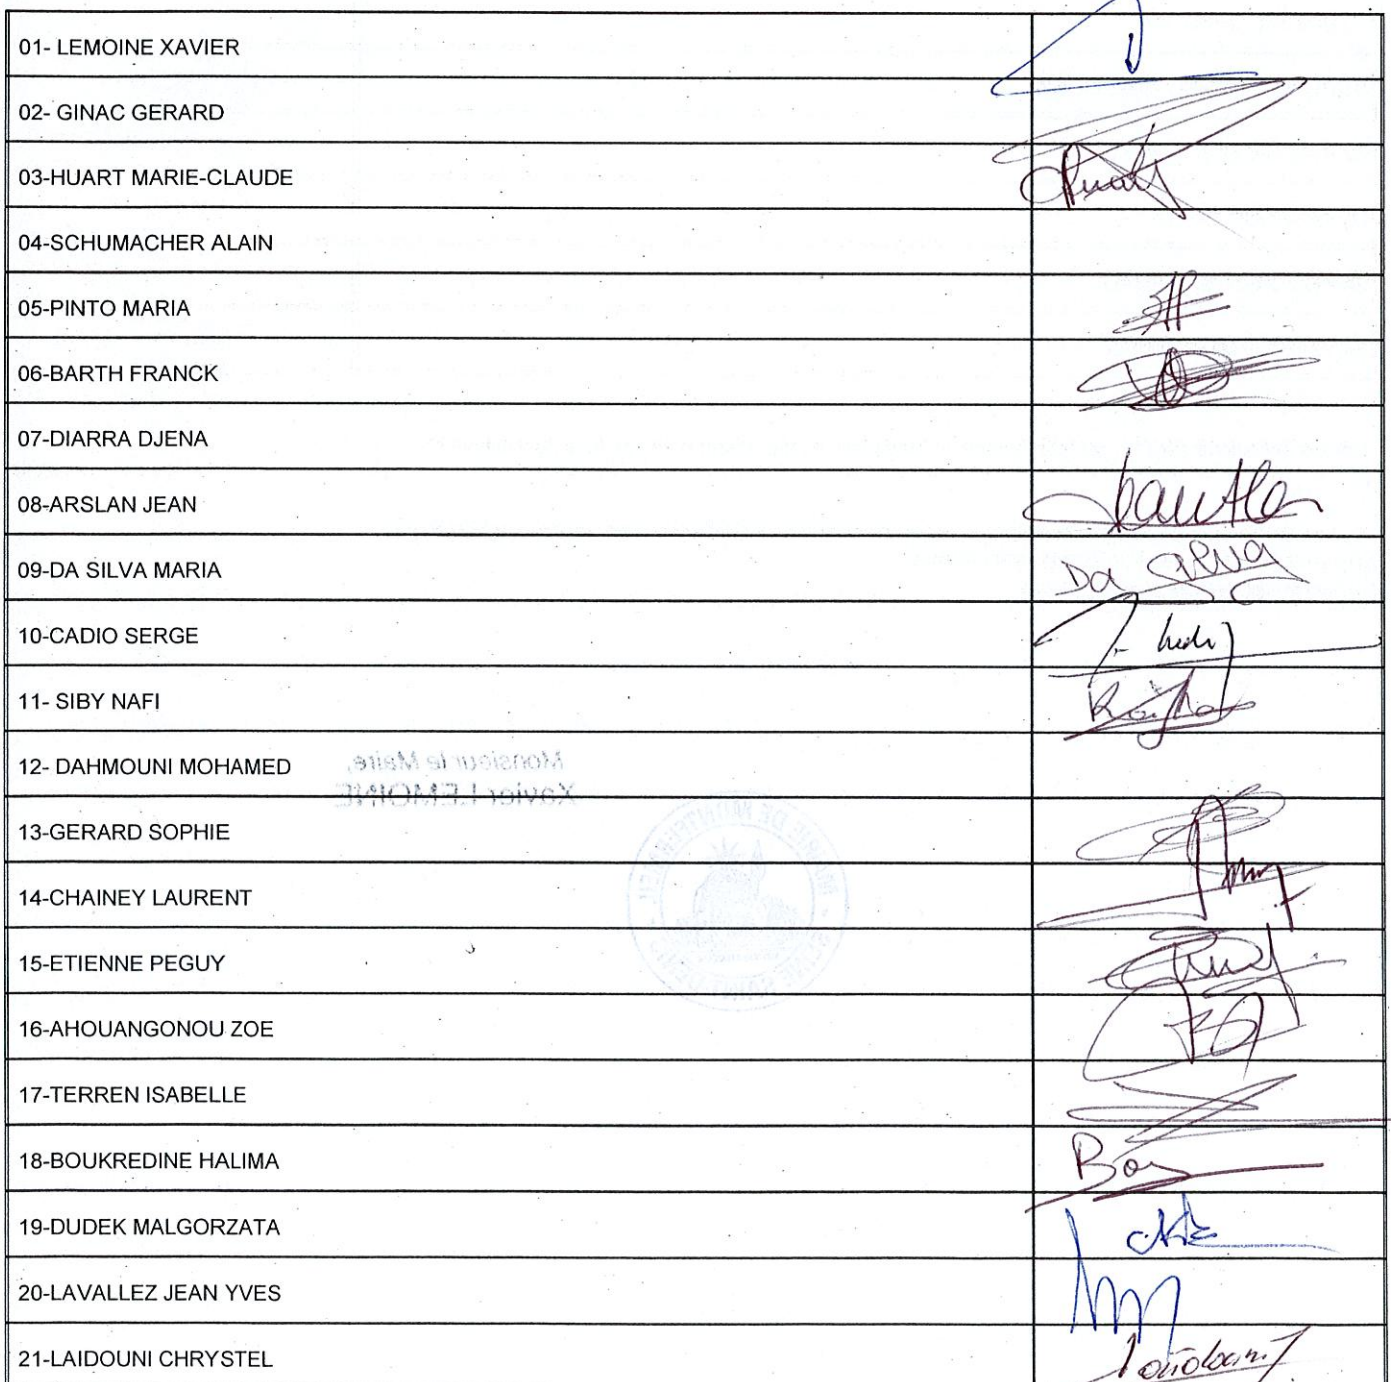 01- LEMOINE XAVIER
02- GINAC GERARD
03-HUART MARIE-CLAUDE
04-SCHUMACHER ALAIN
05-PINTO MARIA
06-BARTH FRANCK
07-DIARRA DJENA
08-ARSLAN JEAN
09-DA SILVA MARIA Da Silva
10-CADIO SERGE
11- SIBY NAFI
12- DAHMOUNI MOHAMED
Monsieur le Maire,
Xavier LEMOINE
13-GERARD SOPHIE
14-CHAINEY LAURENT
15-ETIENNE PEGUY
16-AHOUANGONOU ZOE
17-TERREN ISABELLE
18-BOUKREDINE HALIMA
19-DUDEK MALGORZATA
20-LAVALLEZ JEAN YVES
21-LAIDOUNI CHRYSTEL